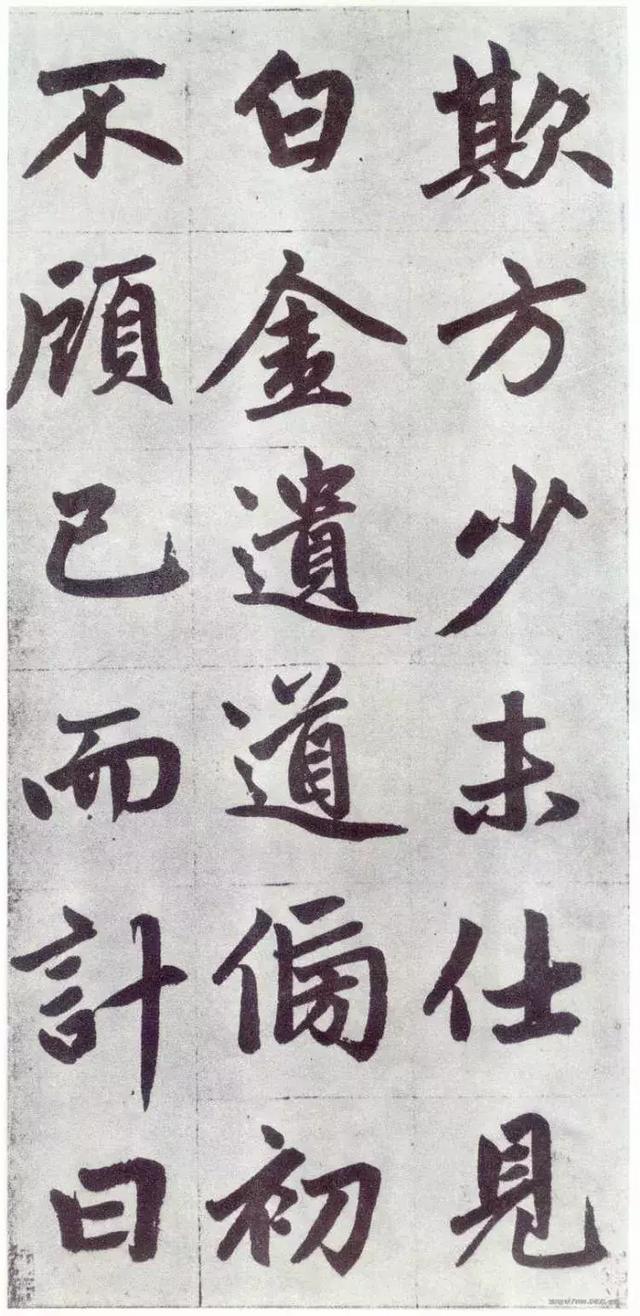 欺方少未仕見
白金遺道傍初
不顧已而計曰